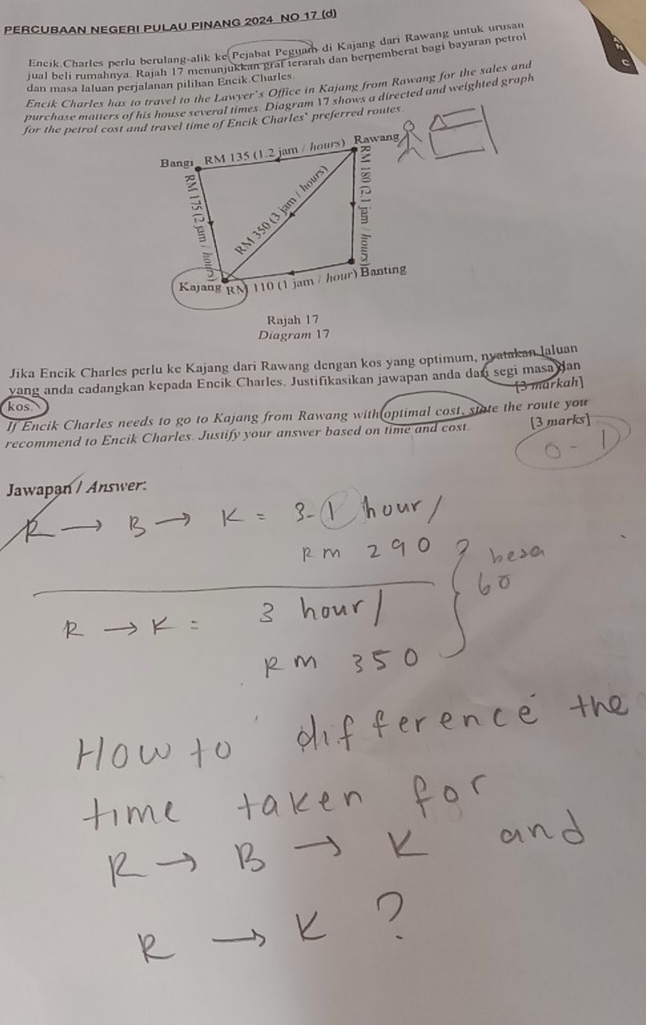 PERCUBAAN NEGERI PULAU PINANG 2024 NO 17 (d)
Encik Charles perlu berulang-alik ke Pejabat Peguam di Kajang dari Rawang untuk urusan
jual beli rumahnya. Rajah 17 menunjukkan graf terarah dan berpemberat bagi bayaran petrol
dan masa laluan perjalanan pilihan Encik Charles.
Encik Charles has to travel to the Lawyer's Office in Kajang from Rawang for the sales and
purchase matters of his house several times. Diagram 17 shows a directed and weighted graph
for the petrol cost and travel time of Encik Charles' preferred routes.
Bangi RM 135 (1.2 jam / hours) Rawang
RM 175 (2 jam / hours)
RM 350 (3 jam / hours)
RM 180 (2.1 jam / hours)
Kajang RM 110 (1 jam / hour) Banting
Rajah 17
Diagram 17
Jika Encik Charles perlu ke Kajang dari Rawang dengan kos yang optimum, nyatakan laluan
yang anda cadangkan kepada Encik Charles. Justifikasikan jawapan anda dari segi masa dan
kos.
[3 markah]
If Encik Charles needs to go to Kajang from Rawang with optimal cost, state the route you
recommend to Encik Charles. Justify your answer based on time and cost.
[3 marks]
0 - 1
Jawapan / Answer:
R → B → K = 3-1 hour/
RM 290
beza
60
R → K = 3 hour/
RM 350
How to difference the
time taken for
R → B → K and
R → K ?